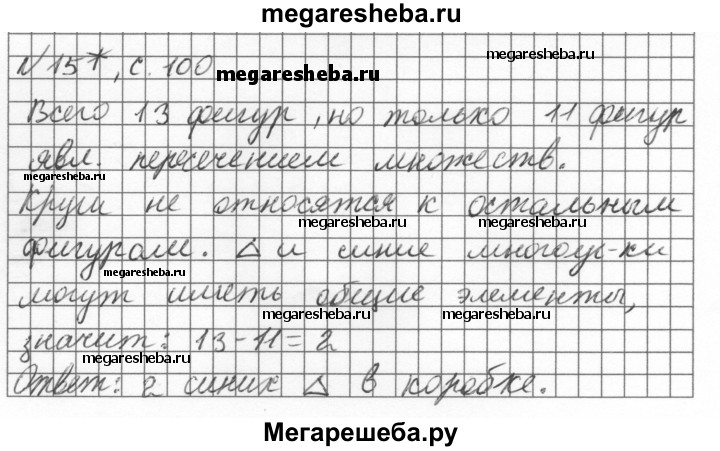 megaresheba.ru
N 15*, с. 100
megaresheba.ru
megaresheba.ru
Всего 13 фигур, но только 11 фигур
явл. пересечением множеств.
megaresheba.ru
Круги не относятся к остальным
megaresheba.ru
megaresheba.ru
фигурам. △ и синие многоуг-ки
megaresheba.ru
могут иметь общие элементы,
megaresheba.ru
megaresheba.ru
значит: 13-11=2
megaresheba.ru
Ответ: 2 синих △ в коробке.
Мегарешеба.ру